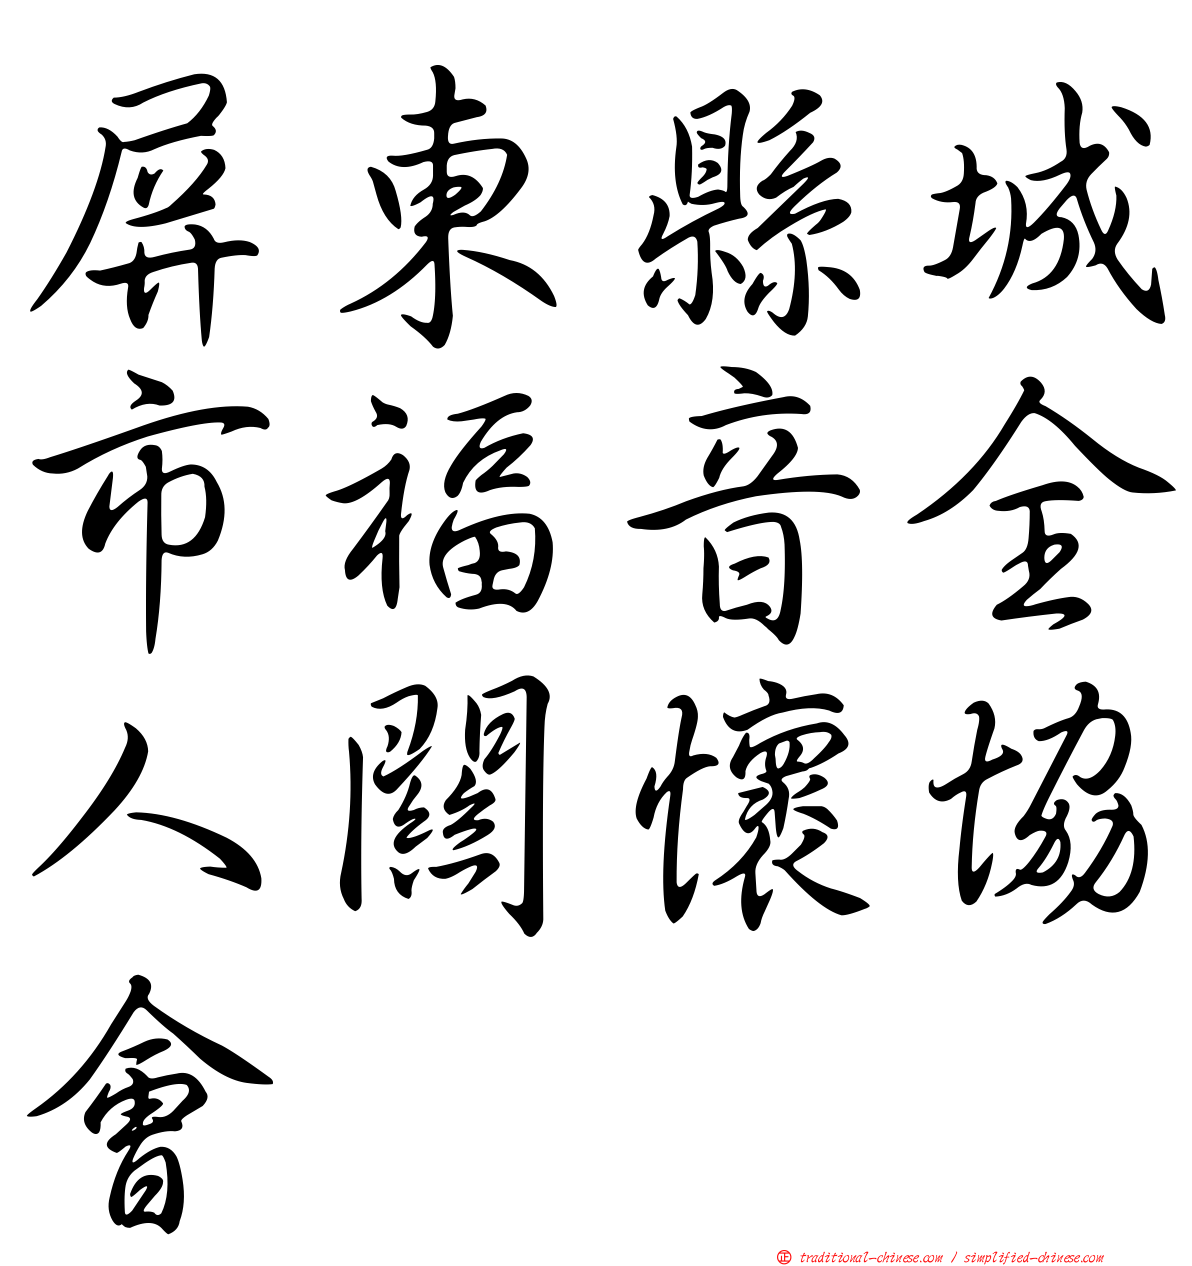 屏東縣城
市福音全
人關懷協
會
正 traditional-chinese.com / simplified-chinese.com